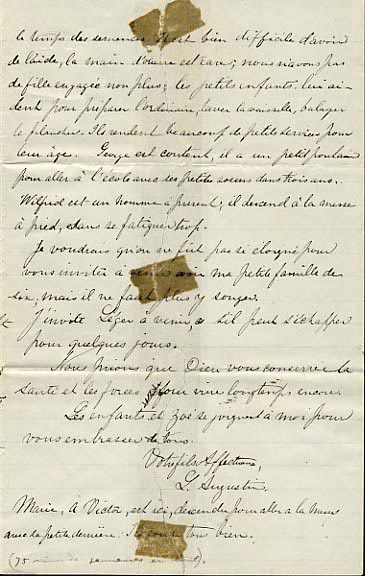 le temps des semences. Il est bien difficile d'avoir
de l'aide, la main d'œuvre est rare; nous n'avons pas
de fille engagée non plus; les petits enfants lui ai-
dent pour préparer l'ordinaire, laver la vaisselle, balayer
le plancher. Ils rendent beaucoup de petits services pour
leur âge. George est content, il a un petit poulain
pour aller à l'école avec ses petites soeurs dans trois ans.
Wilfrid est un homme à présent; il descend à la messe
à pied, et sans se fatiguer trop.
Je voudrais qu'on ne fût pas si éloigné pour
vous inviter à venir voir ma petite famille de
six, mais il ne faut plus y songer.
J'invite Léger à venir, s'il peut s'échapper
pour quelques jours.
Nous prions que Dieu vous conserve la
santé et les forces pour vivre longtemps encore.
Les enfants et Zoé se joignent à moi pour
vous embrasser tous.
Votre fils Affectionné,
L. Augustin
Marie, à Victor, est ici, descendu pour aller à la messe
avec la petite dernière. Ils sont tous bien.
(75 de semences en